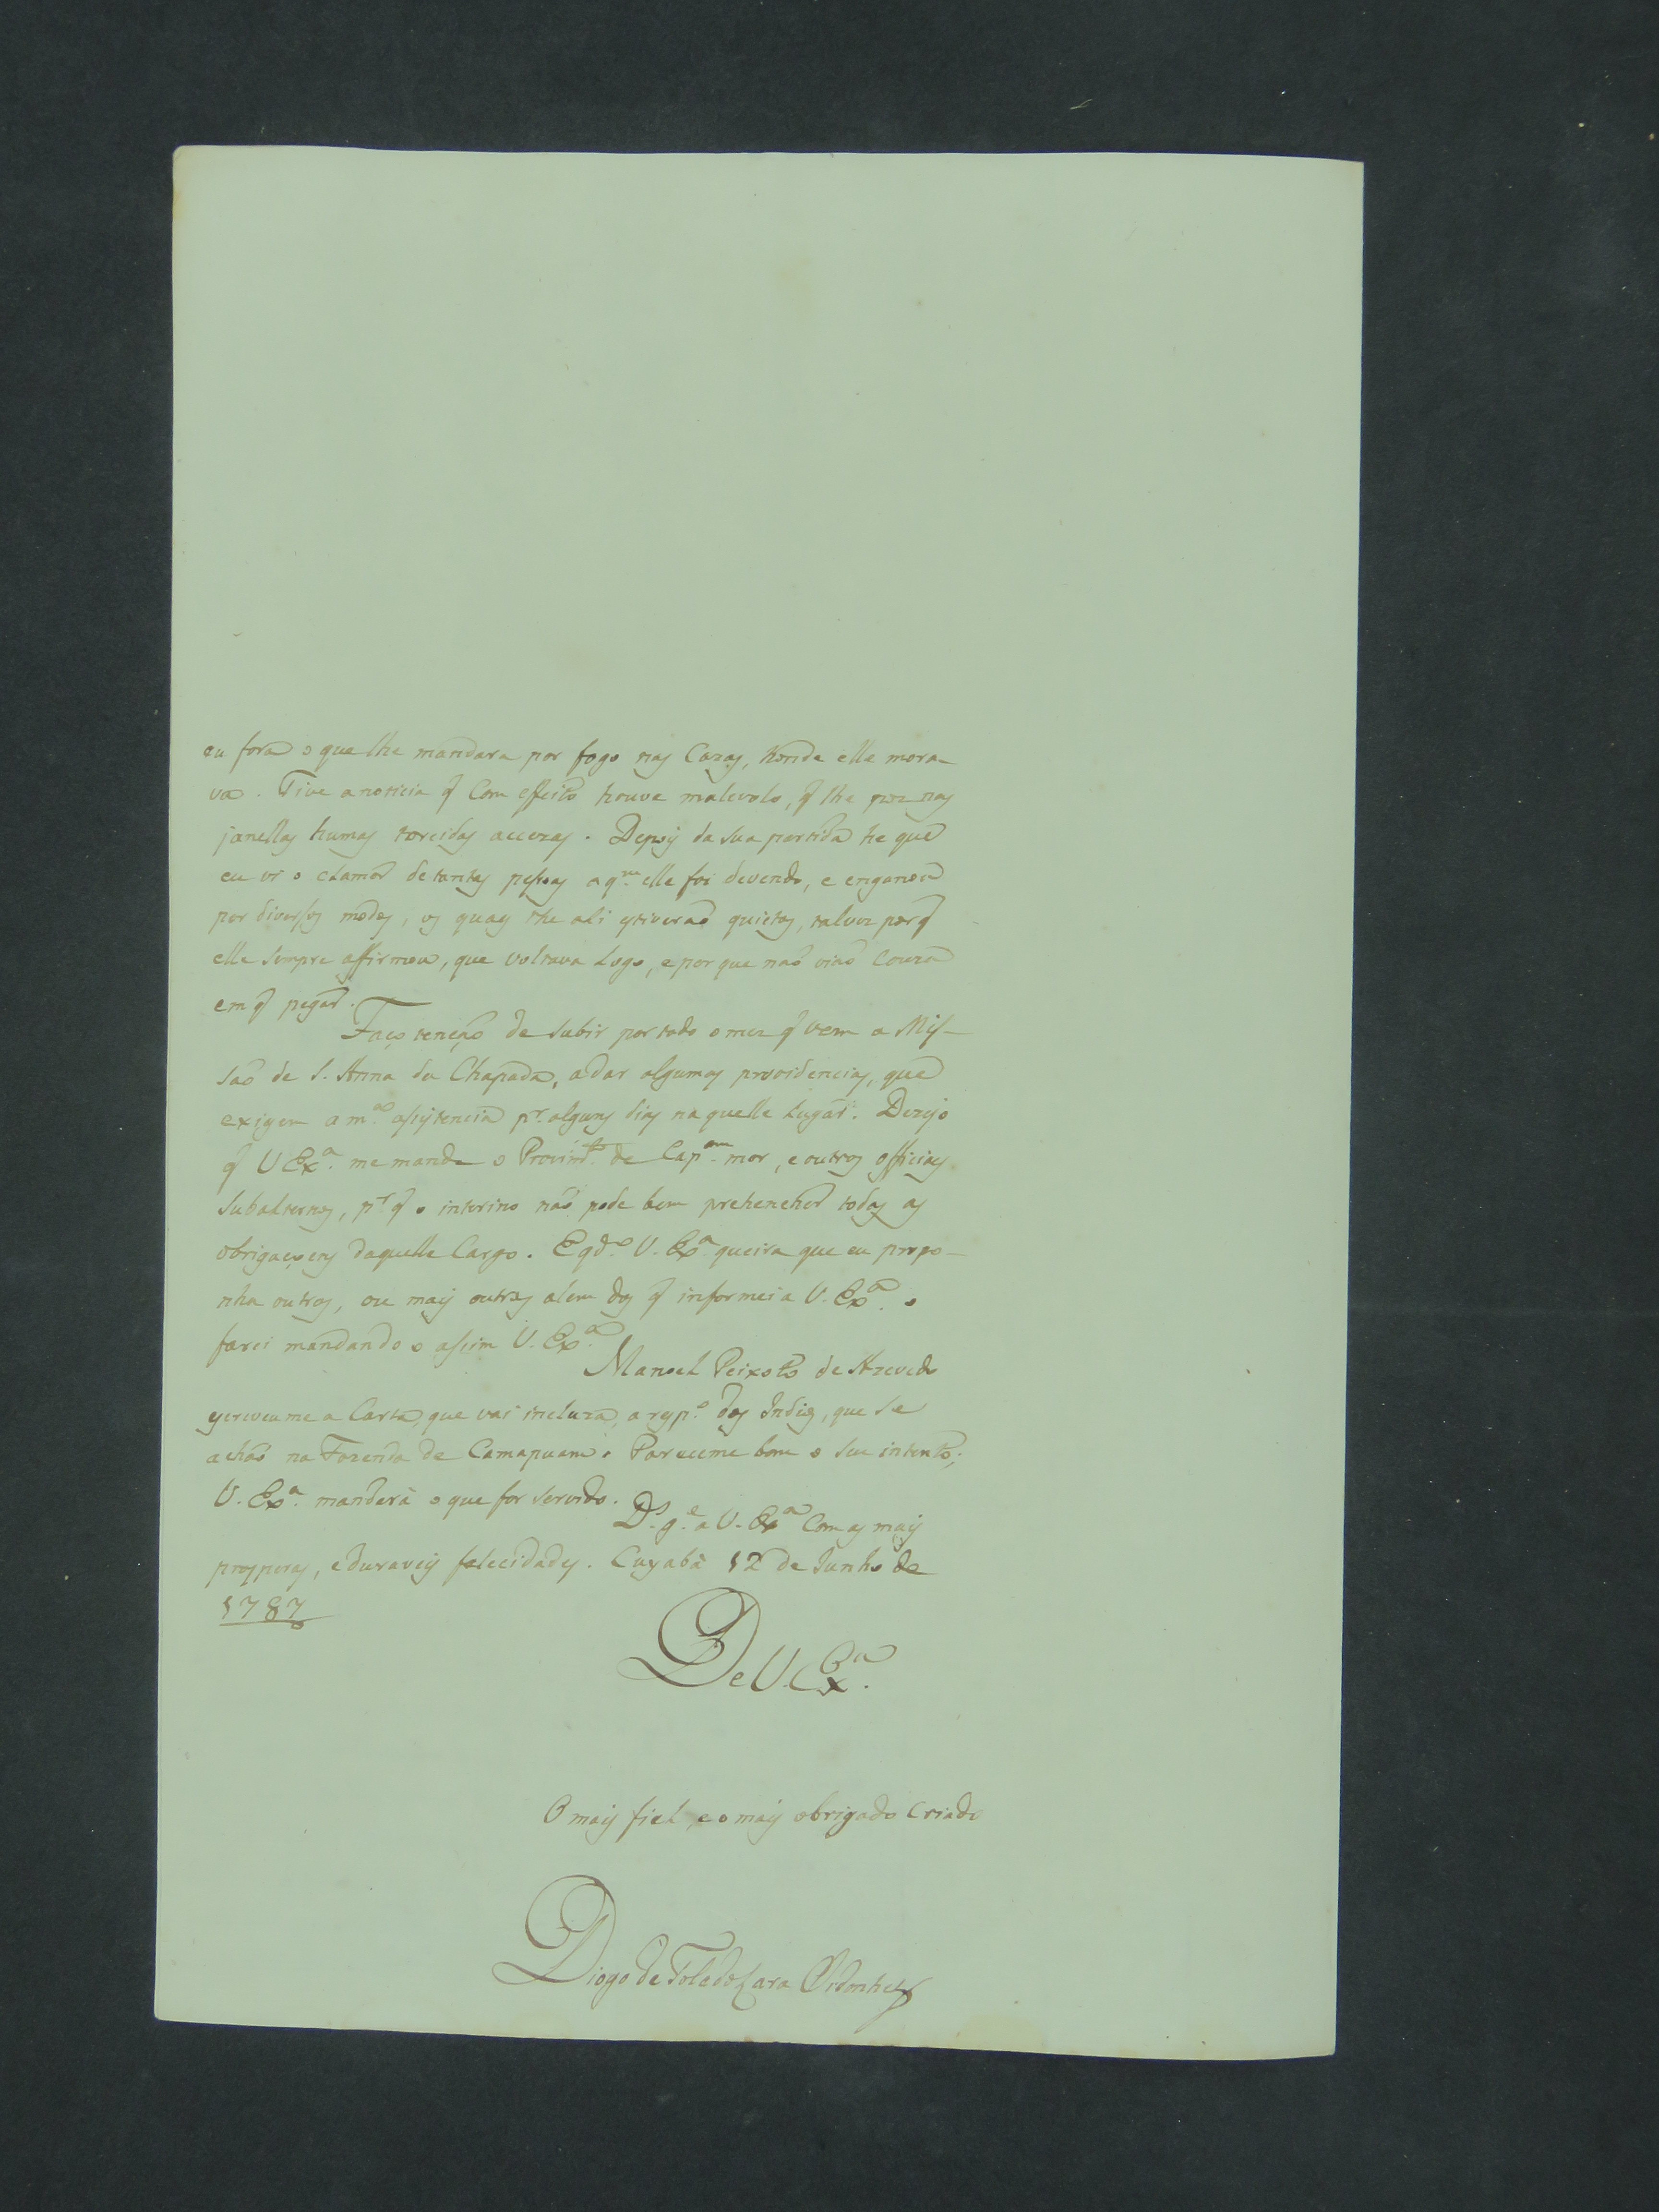 eu fora o que lhe mandara por fogo nas Cazas, honde elle mora-
va. Tive a noticia q̃ Com effeito houve malevolo, q̃ lhe poz nas
janellas humas torcidas accezas. Depois da sua partida he que
eu vi o clamor de tantas pessoas a q.m elle foi devendo, e enganou
por diversos modos, os quaes the ali estiverão quietos, talvez porq̃
elle sempre affirmou, que voltava Logo, e por que não vião Couza
em q̃ pegar.
Faço tenção de subir por todo o mez q̃ vem a Mis-
são de S. Anna da Chapada, a dar algumas providencias, que
exigem a m.a assistencia p.r alguns dias naquelle Lugar. Dezejo
q̃ V Ex.a me mande o Provim.to de Cap.am mor, e outros officiaes
Subalternos, p.r q̃ o interino não pode bem prehencher todas as
obrigaçoens daquelle Cargo. E qd.o V. Ex.a queira que eu propo-
nha outros, ou mais outros alem dos q̃ informei a V. Ex.a o
farei mandando o assim V. Ex.a
Manoel Peixoto de Azevedo
escreveume a Carta, que vai incluza, a resp.o dos Indios, que se
achão na Fazenda de Camapuam. Pareceme bom o seu intento;
V. Ex.a mandarà o que for servido.
D.s g.e a V. Ex.a Com as mais
prosperas, e duraveis felecidades. Cuyabà 12 de Junho de
1787
De V. Ex.a
O mais fiel, e o mais obrigado Criado
Diogo de Toledo Lara Ordonhes